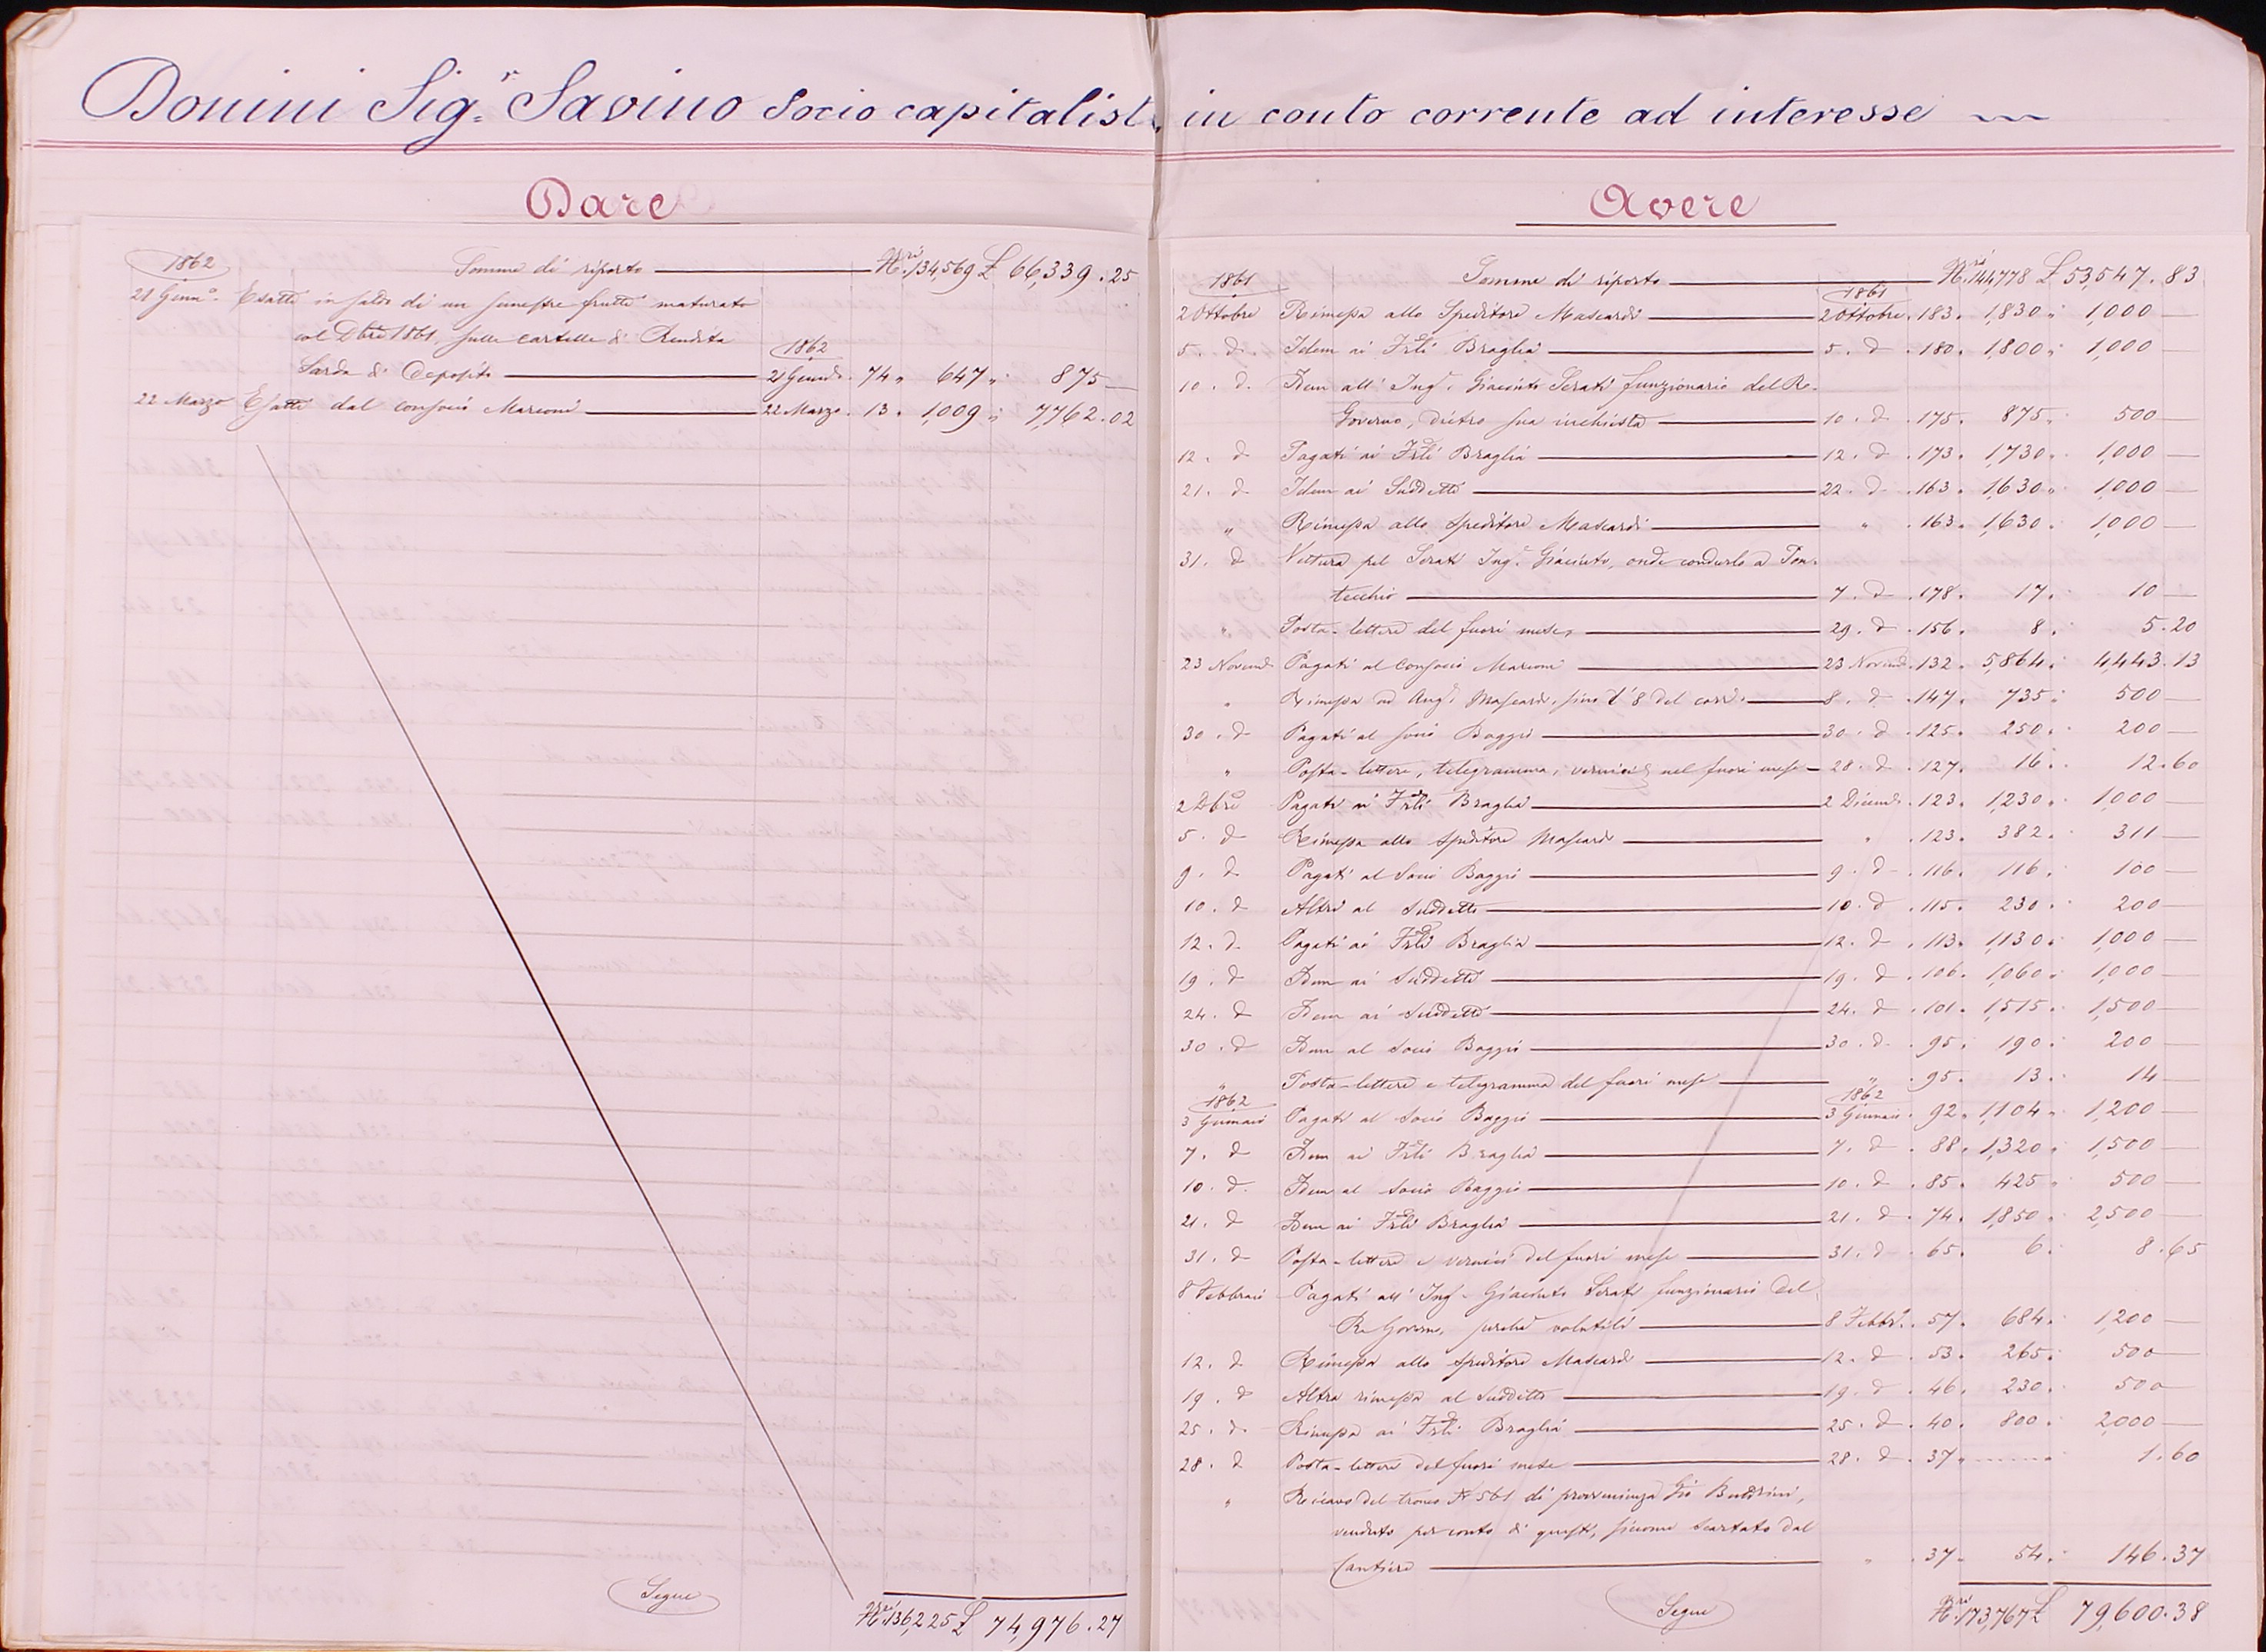 Donini Sig.r Savino Socio capitalista in conto corrente ad interesse
Dare
1862 Somma di riporto N.ri 134,569 £ 66,339.25
21 Genn.o Esatti in saldo di un semestre frutti maturato
col Dbre 1861, sulle cartelle di Rendita
1862
Sarda di Deposito 21 Genn. 74 " 647 " 875 —
22 Marzo Esatti dal consocio Marconi 22 Marzo. 13. 1,009 " 7,762.02
Segue
N.ri 136,225 £ 74,976.27
Avere
1861 Somma di riporto N.ri 144,778 £ 53,547.83
1861
2 Ottobre Rimessa allo Speditore Mascardi 2 Ottobre. 183. 1,830 " 1,000 —
5. d. Idem ai F.lli Braglia 5. d. 180. 1,800 " 1,000 —
10. d. Idem all' Ing.e Giacinto Serati funzionario del R.o
Governo, dietro sua inchiesta 10. d. 175. 875. 500 —
12. d Pagati ai F.lli Braglia 12. d. 173. 1,730. 1,000 —
21. d Idem ai Suddetti 22. d. 163. 1,630. 1,000 —
" Rimessa allo Speditore Mascardi " 163. 1,630. 1,000 —
31. d Vettura pel Serati Ing.e Giacinto, onde condurlo a Pon-
tecchio 7. d. 178. 17. 10 —
" Posta-lettere del fuori mese 29. d. 156. 8. 5.20
23 Novemb. Pagati al Consocio Marconi 23 Novemb. 132. 5,864. 4,443.13
" Rimessa ad Ang. Mascardi, sino l'8 del corr. 8. d. 147. 735. 500 —
30. d Pagati al socio Baggio 30. d. 125. 250. 200 —
" Posta-lettere, telegramma, vernici nel fuori mese 28. d. 127. 16. 12.60
2 Dbre Pagati ai F.lli Braglia 2 Dicemb. 123. 1,230. 1,000 —
5. d Rimessa allo Speditore Mascardi " 123. 382. 311 —
9. d Pagati al Socio Baggio 9. d. 116. 116. 100 —
10. d Altri al Suddetto 10. d. 115. 230. 200 —
12. d. Pagati ai F.lli Braglia 12. d. 113. 1,130. 1,000 —
19. d Idem ai Suddetti 19. d. 106. 1,060. 1,000 —
24. d Idem ai Suddetti 24. d. 101. 1,515. 1,500 —
30. d Idem al Socio Baggio 30. d. 95. 190. 200 —
" Posta-lettere e telegramma del fuori mese " 95. 13. 14 —
1862 1862
3 Gennaio Pagati al Socio Baggio 3 Gennaio. 92. 1,104. 1,200 —
7. d Idem ai F.lli Braglia 7. d. 88. 1,320. 1,500 —
10. d. Idem al Socio Baggio 10. d. 85. 425. 500 —
21. d Idem ai F.lli Braglia 21. d. 74. 1,850. 2,500 —
31. d Posta-lettere e vernici del fuori mese 31. d. 65. 6. 8.65
8 Febbraio Pagati all' Ing.e Giacinto Serati funzionario del
R.o Governo, perché volutili 8 Febbr. 57. 684. 1,200 —
12. d Rimessa allo Speditore Mascardi 12. d. 53. 265. 500 —
19. d Altra rimessa al Suddetto 19. d. 46. 230. 500 —
25. d. Rimessa ai F.lli Braglia 25. d. 40. 800. 2,000 —
28. d Posta-lettere del fuori mese 28. d. 37. 1.60
" Ricavo del tronco N.o 561 di provenienza Gio Buldrini,
venduto per conto di questi, siccome scartato dal
Cantiere " 37. 54. 146.37
Segue
N.ri 173,767 £ 79,600.38